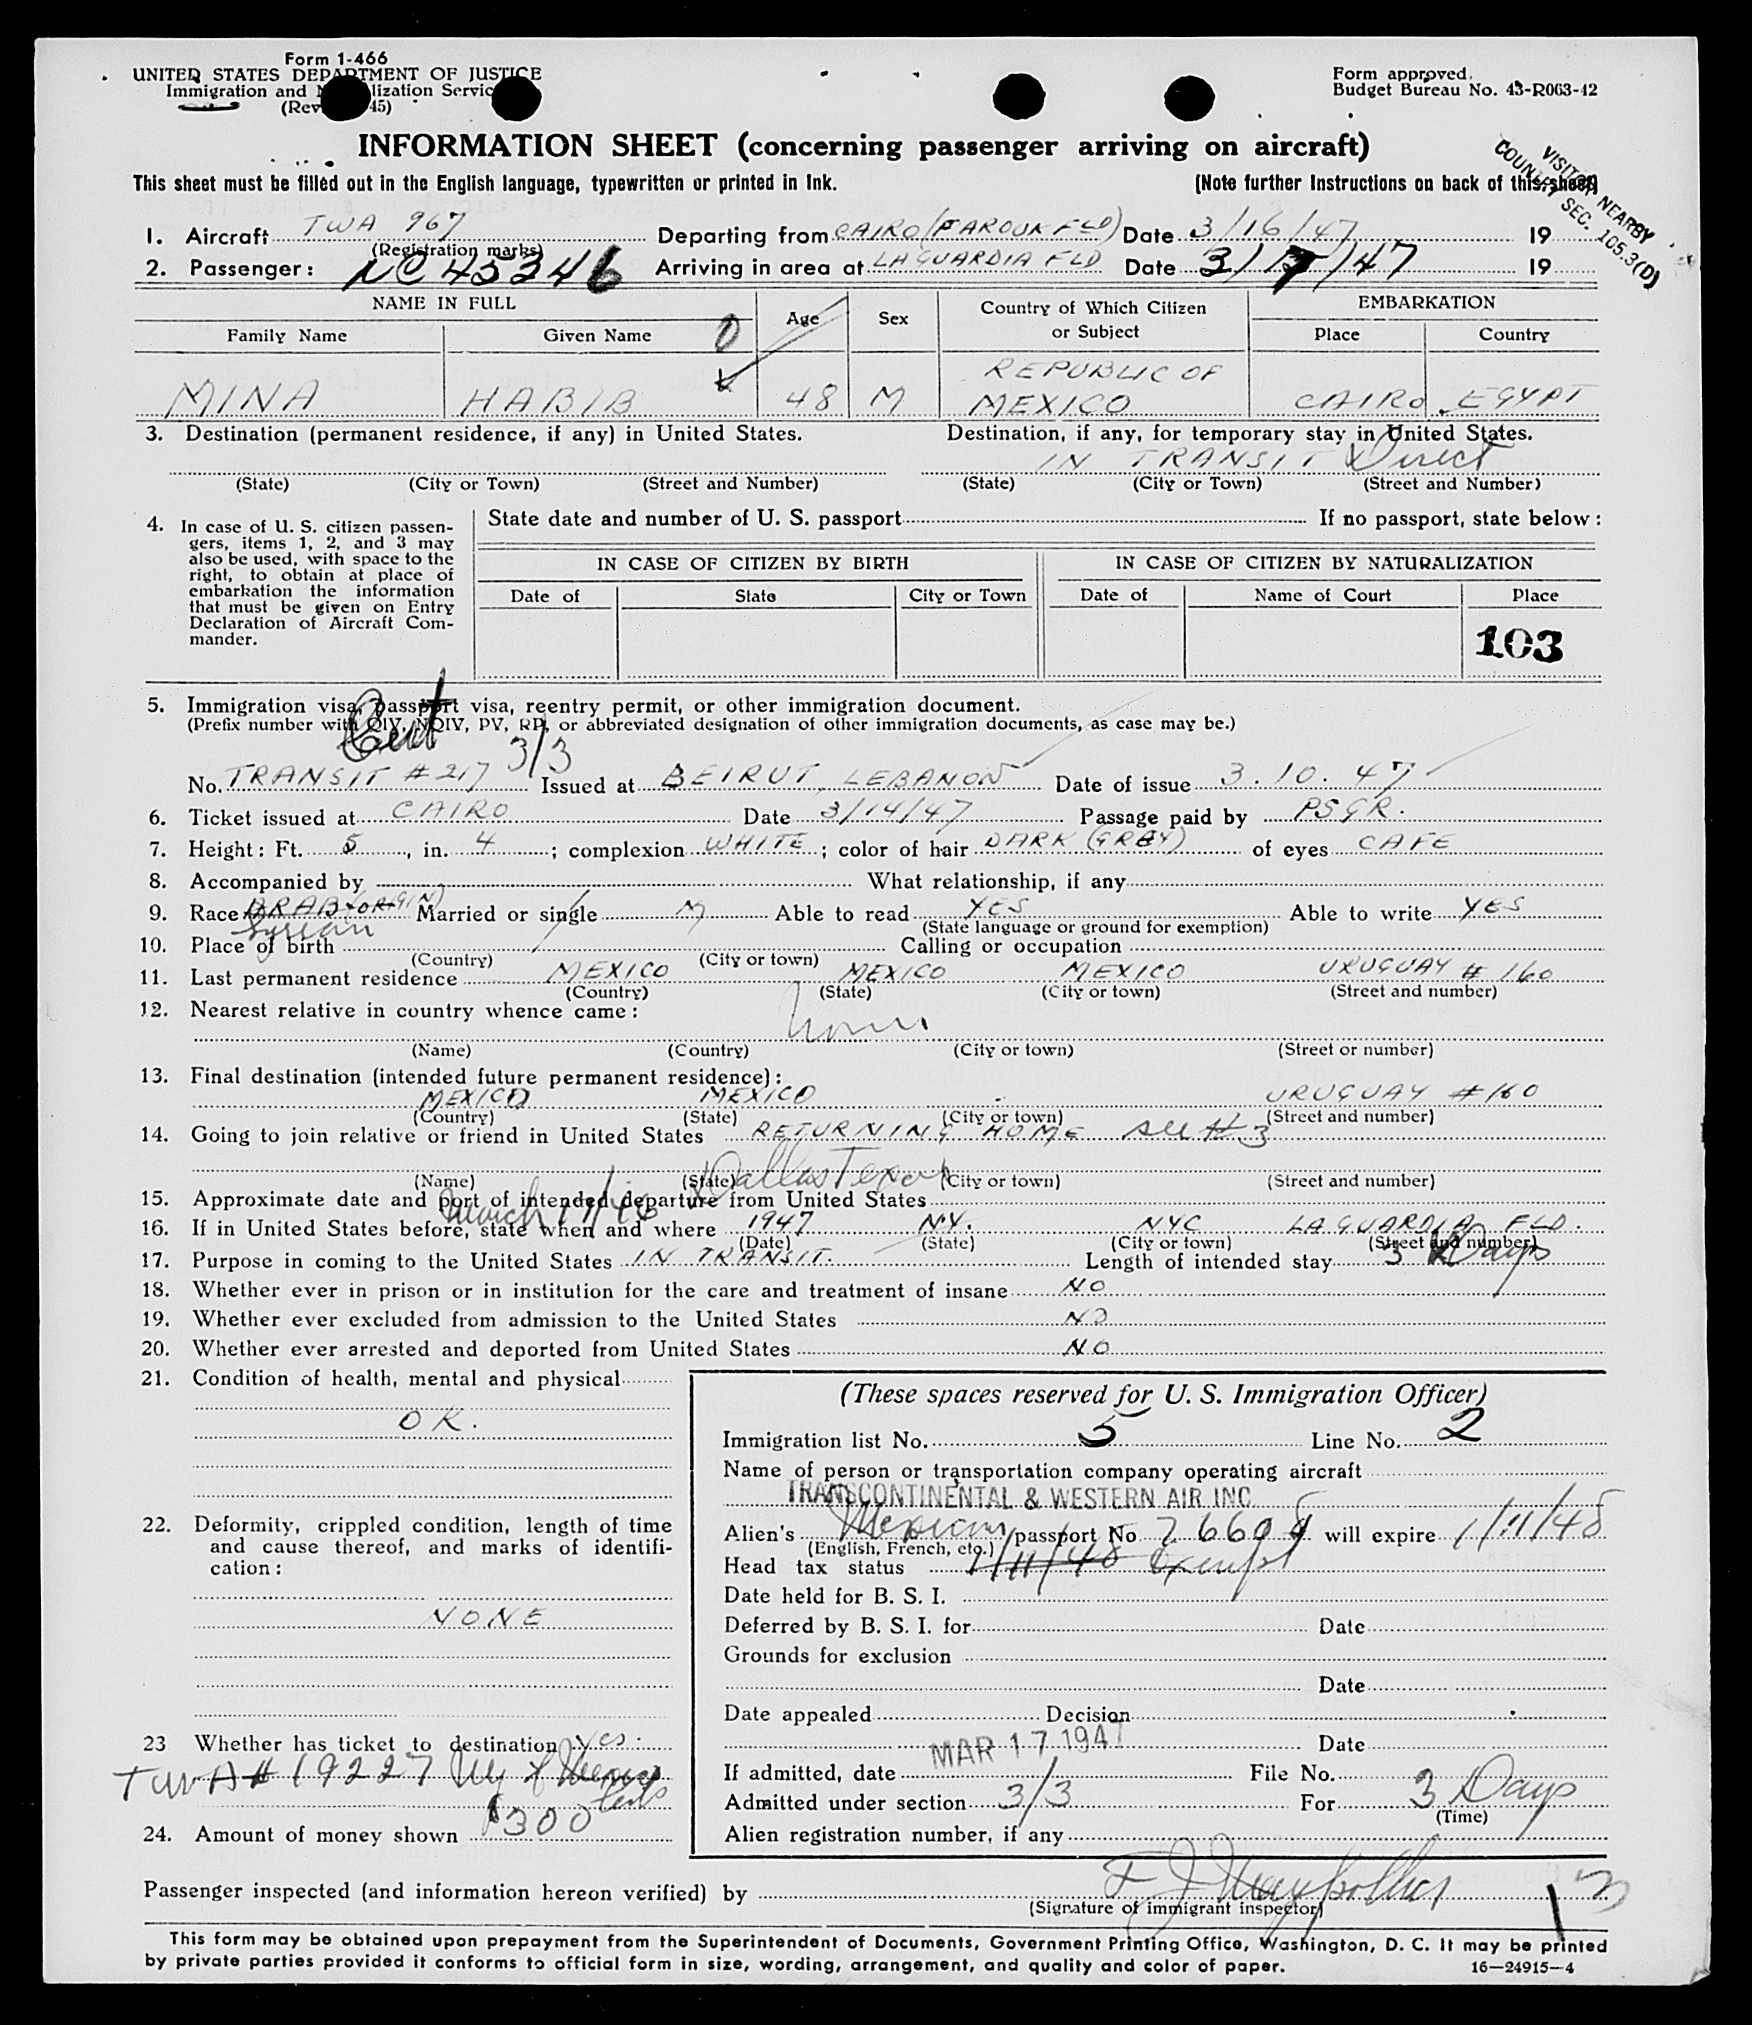 Form 1-466
UNITED STATES DEPARTMENT OF JUSTICE
Immigration and Naturalization Service
(Rev. 45)
Form approved.
Budget Bureau No. 43-R063-42
INFORMATION SHEET (concerning passenger arriving on aircraft)
This sheet must be filled out in the English language, typewritten or printed in ink.
(Note further instructions on back of this sheet)
VISITOR NEARBY
COUNTRY SEC. 105.3(D)
1. Aircraft TWA 967 Departing from CAIRO (FAROUK FLD) Date 3/16/47 19
(Registration marks)
2. Passenger: NC 45346 Arriving in area at LAGUARDIA FLD Date 3/17/47 19
NAME IN FULL
Family Name Given Name Age Sex Country of Which Citizen or Subject EMBARKATION Place Country
MINA HABIB 48 M REPUBLIC OF MEXICO CAIRO EGYPT
3. Destination (permanent residence, if any) in United States. Destination, if any, for temporary stay in United States.
IN TRANSIT Direct
(State) (City or Town) (Street and Number) (State) (City or Town) (Street and Number)
4. In case of U. S. citizen passen-
gers, items 1, 2, and 3 may
also be used, with space to the
right, to obtain at place of
embarkation the information
that must be given on Entry
Declaration of Aircraft Com-
mander.
State date and number of U. S. passport If no passport, state below:
IN CASE OF CITIZEN BY BIRTH IN CASE OF CITIZEN BY NATURALIZATION
Date of State City or Town Date of Name of Court Place
103
5. Immigration visa, passport visa, reentry permit, or other immigration document.
(Prefix number with QIV, NQIV, PV, RP, or abbreviated designation of other immigration documents, as case may be.)
Cert 3/3
No. TRANSIT #217 Issued at BEIRUT, LEBANON Date of issue 3.10.47
6. Ticket issued at CAIRO Date 3/14/47 Passage paid by PSGR.
7. Height: Ft. 5, in. 4; complexion WHITE; color of hair DARK (GREY) of eyes CAFE
8. Accompanied by What relationship, if any
9. Race ARAB (ORIGIN) Married or single M Able to read YES Able to write YES
Syrian
(State language or ground for exemption)
10. Place of birth Calling or occupation
(Country) (City or town)
11. Last permanent residence MEXICO MEXICO MEXICO URUGUAY #160
(Country) (State) (City or town) (Street and number)
12. Nearest relative in country whence came:
(Name) (Country) (City or town) (Street or number)
13. Final destination (intended future permanent residence):
MEXICO MEXICO URUGUAY #160
(Country) (State) (City or town) (Street and number)
14. Going to join relative or friend in United States RETURNING HOME see #3
(Name) (State) (City or town) (Street and number)
Dallas Texas
15. Approximate date and port of intended departure from United States
16. If in United States before, state when and where 1947 N.Y. NYC LAGUARDIA FLD.
(Date) (State) (City or town) (Street and number)
17. Purpose in coming to the United States IN TRANSIT. Length of intended stay 3 Days
18. Whether ever in prison or in institution for the care and treatment of insane NO
19. Whether ever excluded from admission to the United States NO
20. Whether ever arrested and deported from United States NO
21. Condition of health, mental and physical
OK.
22. Deformity, crippled condition, length of time
and cause thereof, and marks of identifi-
cation:
NONE
23 Whether has ticket to destination Yes.
TWA # 19227
24. Amount of money shown $300
(These spaces reserved for U. S. Immigration Officer)
Immigration list No. 5 Line No. 2
Name of person or transportation company operating aircraft
TRANSCONTINENTAL & WESTERN AIR INC
Alien's Mexican passport No will expire 1/11/48
(English, French, etc.)
Head tax status 1/11/48 Exempt
Date held for B. S. I.
Deferred by B. S. I. for Date
Grounds for exclusion
Date
Date appealed Decision
Date
MAR 17 1947
If admitted, date File No.
Admitted under section 3/3 For 3 Days
(Time)
Alien registration number, if any
Passenger inspected (and information hereon verified) by
(Signature of immigrant inspector)
This form may be obtained upon prepayment from the Superintendent of Documents, Government Printing Office, Washington, D. C. It may be printed
by private parties provided it conforms to official form in size, wording, arrangement, and quality and color of paper. 16—24915-4